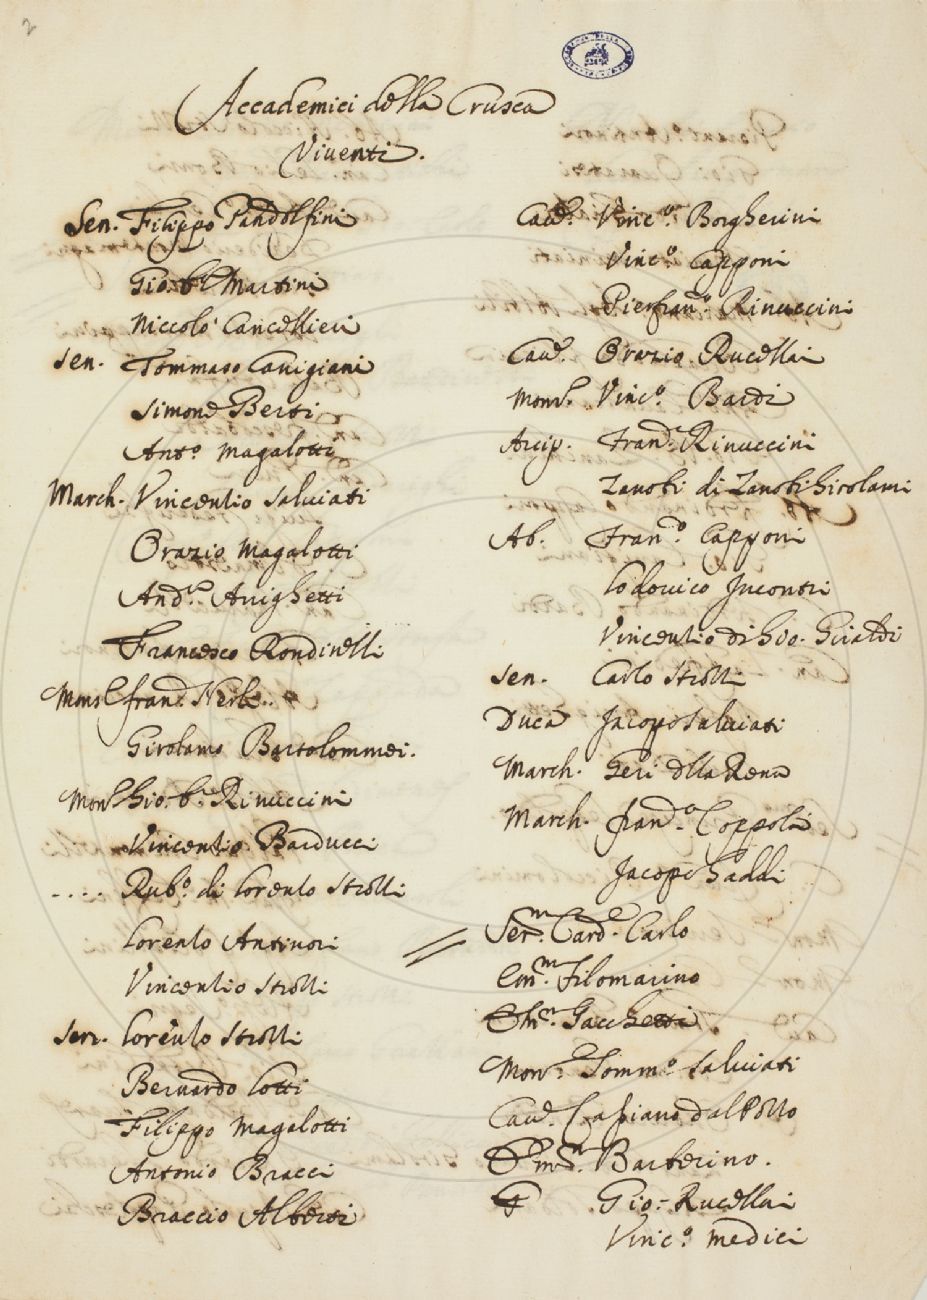 2
Accademici della Crusca
Viventi.
Sen. Filippo Pandolfini
Gio: Bt Martini
Niccolò Cancellieri
Sen. Tommaso Cavigiani
Simone Berti
Anto. Magalotti
March. Vincentio Salviati
Orazio Magalotti
And.a Arrighetti
Francesco Rondinelli
Mons.r fran.o Nerli
Girolamo Bartolommei.
Mons.r Gio. b.a Rinuccini
Vincentio Barducci
.... Rub.o di Lorenzo Strozzi
Lorenzo Antinori
Vincentio Strozzi
Sen. Lorenzo Strozzi
Bernardo Lotti
Filippo Magalotti
Antonio Bracci
Braccio Alberti
Cav.r Vinc.o Borgherini
Vinc.o Capponi
Pierfran.o Rinuccini
Cav.r Orazio Rucellai
Mons.r Vinc.o Bardi
Arcip. Fran.o Rinuccini
Zanobi di Zanobi Girolami
Ab. Fran.o Capponi
Lodovico Incontri
Vincentio di Gio. Giraldi
Sen. Carlo Strozzi
Duca Jacopo Salviati
March. Geri della Rena
March. fran.o Coppoli
Jacopo Gaddi
Ser.m Card.e Carlo
Em.m Filomarino
Em.m Sacchetti
Mons.r Tomm.o Salviati
Cav.r Cassiano dal Pozzo
Em.m Barberino.
Gio: Rucellai
Vinc.o Medici